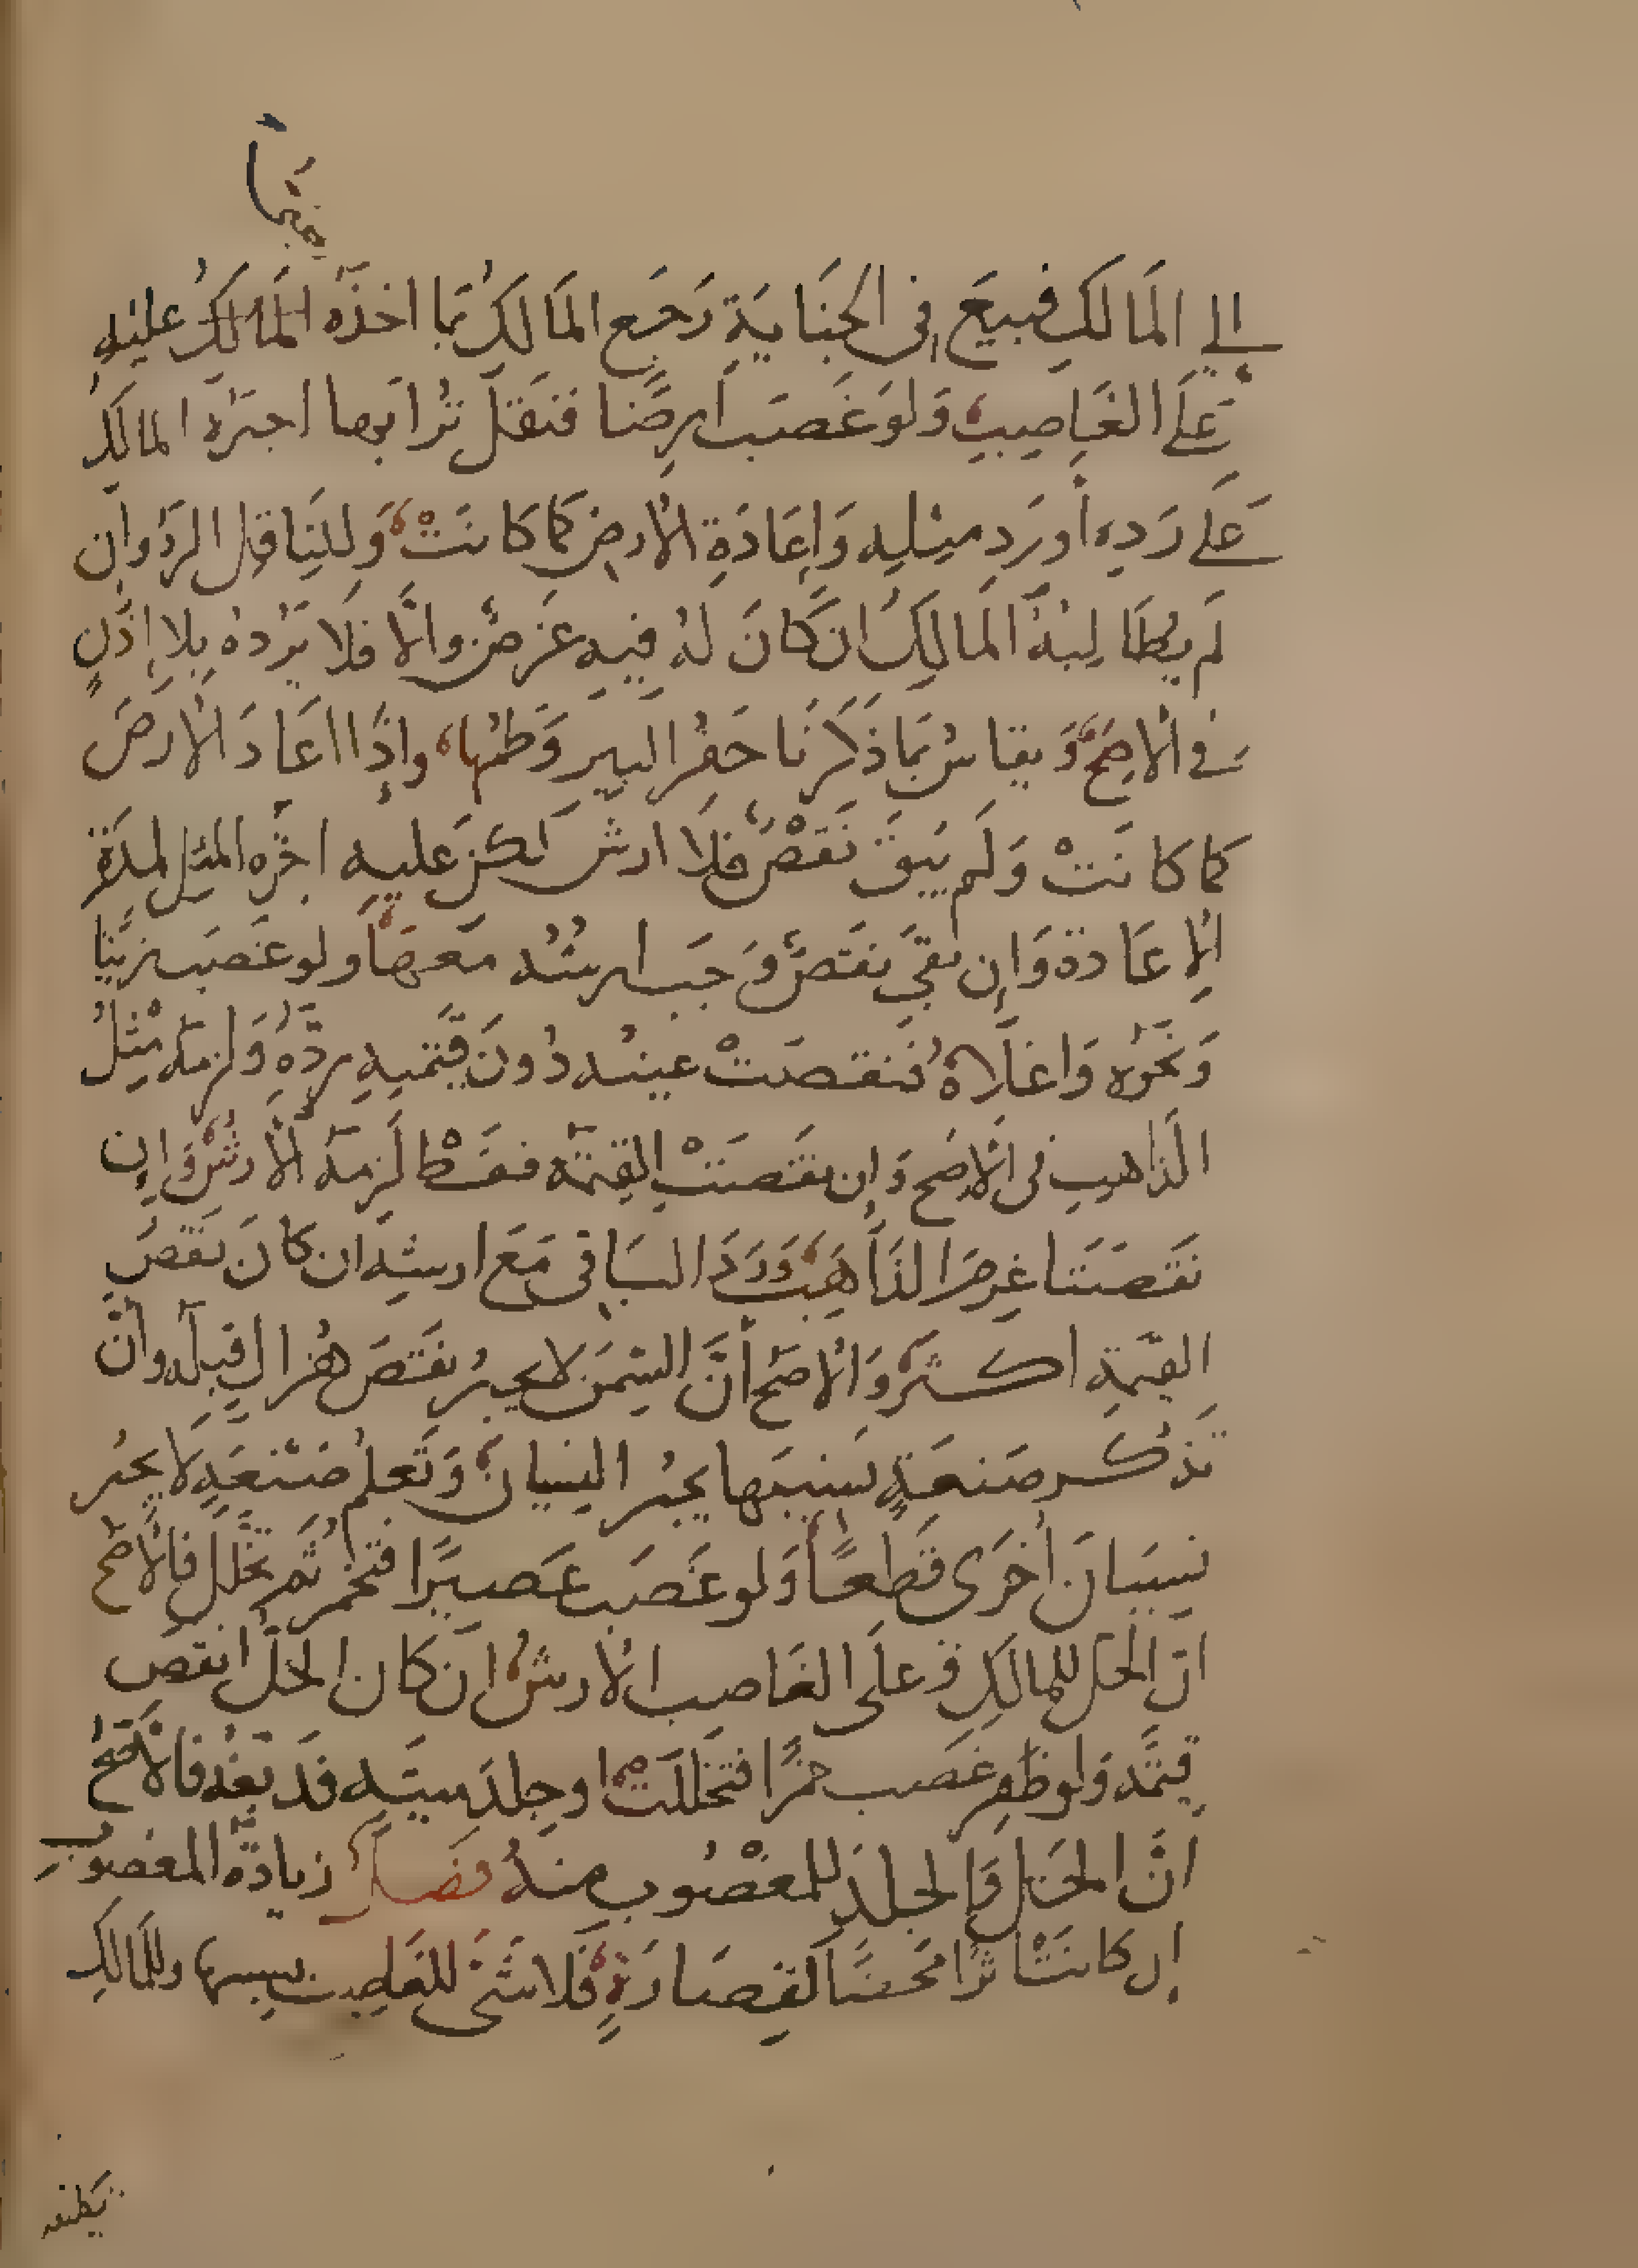 الي المالك فبيع في الجناية رجع المالك بما اخذه المالك عليه
على الغاصب ولو غصب ارضا فنقل ترابها اجبره المالك
على رده او رد مثله واعادة الارض كما كانت وللناقل الرد وان
لم يطالبه المالك ان كان له فيه غرض والا فلا يرده بلا اذن
في الاصح ويقاس بما ذكرنا حفر البير وطمها واذا اعاد الارض
كما كانت ولم يبق نقص فلا ارش لكن عليه اجرة المثل لمدة
الاعادة وان بقي نقص وجب ارشه معها ولو غصب زيتا
ونحوه واغلاه فنقصت عينه دون قيمته رده ولزمه مثل
الذاهب في الاصح وان نقصت القيمة فقط لزمه الارش وان
نقصتا غرم الذاهب ورد الباقي مع ارشه ان كان نقص
القيمة اكثر والاصح ان السمن لا يجبر نقص هزال قبله وان
تذكر صنعة نسيها يجبر النسيان وتعلم صنعة لا يجبر
نسيان اخرى قطعا ولو غصب عصيرا فتخمر ثم تخلل فالاصح
ان الخل للمالك وعلى الغاصب الارش ان كان الخل انقص
قيمة ولو غصب خمرا فتخللت او جلد ميتة فدبغه فالاصح
ان الخل والجلد للمغصوب منه فصل زيادة المغصوب
ان كانت اثرا محضا كقصارة فلا شي للغاصب بسببها وللمالك